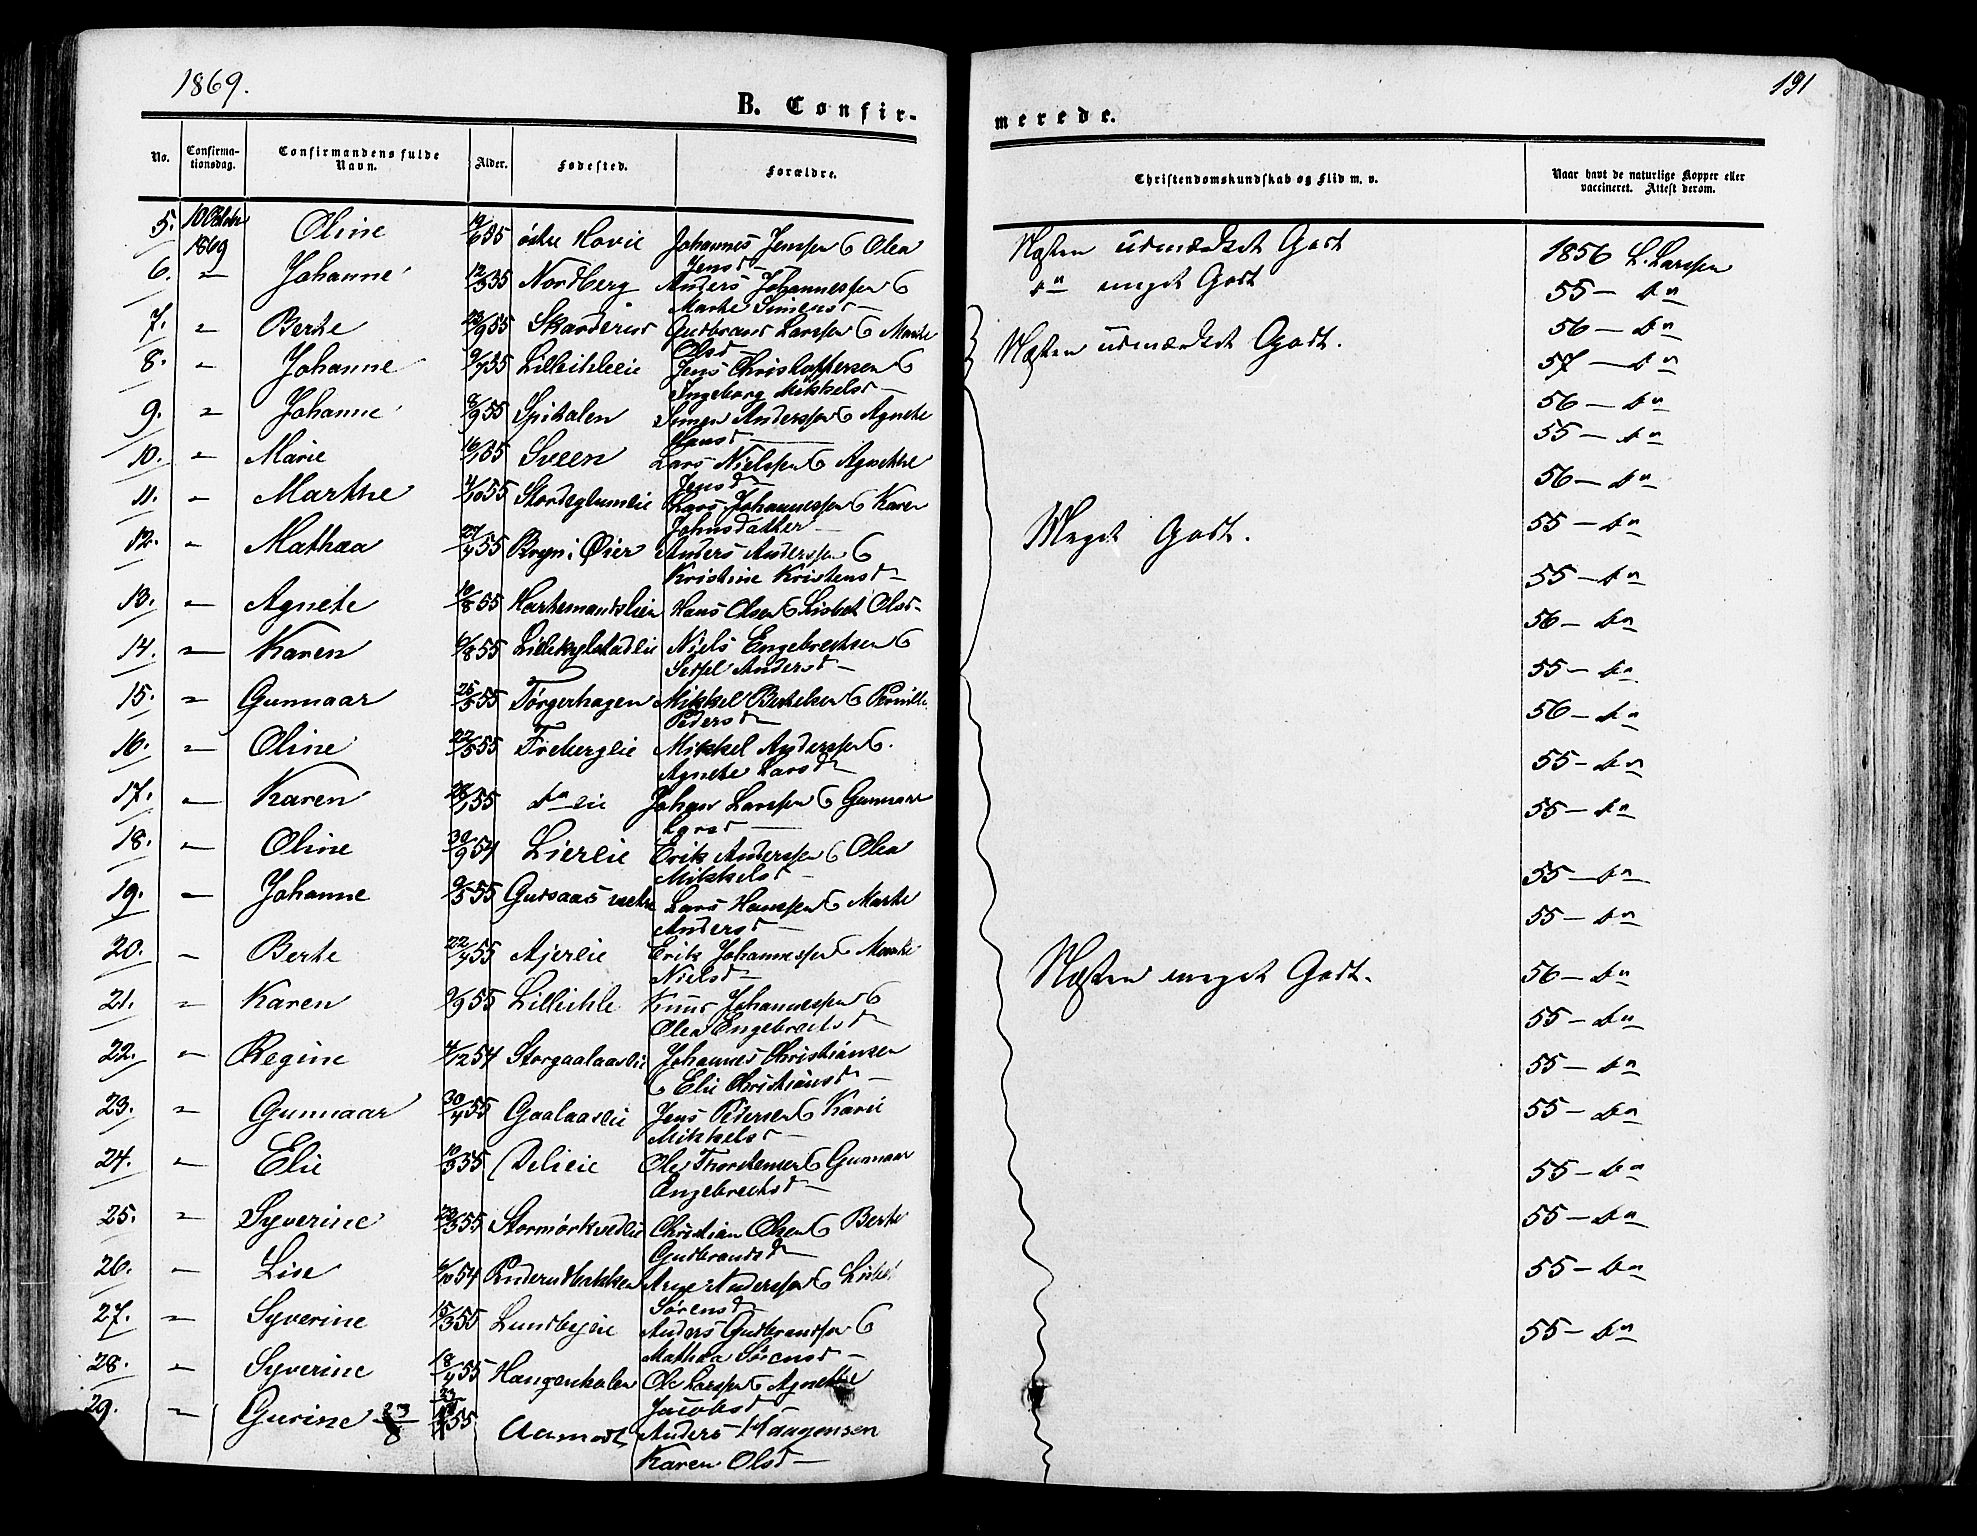 1869.
191
B. Confir-
merede.
No.
Confirma-
tionsdag.
Confirmandens fulde
Navn.
Alder.
Fødested.
Forældre.
Christendomskundskab og Flid m. v.
Naar havt de naturlige Kopper eller
vaccineret. Attest derom.
5. 10 Oktbr 1869 Oline 55 østre Hovie Johannes Jenssen & Olea Jensd Næsten udmærket Godt 1856 L. Larssen
6. " Johanne 12/3 55 Nordberg Anders Johannessen & Marte Simensd do meget Godt 55 — do
7. " Berte 23/9 55 Skarderud Gudbrand Larssen & Marthe Olsd Næsten udmærket Godt. 56 — do
8. " Johanne 9/7 55 Lilleihleeie Jens Christoffersen & Ingeborg Mikkelsd 57 — do
9. " Johanne 8/9 55 Spitalen Simen Anderssen & Agnete Hansd 56 — do
10. " Marie 16/1 55 Sveen Lars Nielssen & Agnethe Jensd 55 — do
11. " Marthe 4/10 55 Stordeglumeie Lars Johannessen & Karen Johnsdatter 56 — do
12. " Mathea 27/4 55 Bryn i Øier Anders Anderssen & Kristine Kristensd Meget Godt. 55 — do
13. " Agnete 10/8 55 Hartemandslien Hans Olsen & Lisbet Olsd 55 — do
14. " Karen 6/8 55 Lillekylstadlie Niels Engebrethsen & Sidsel Andersd 56 — do
15. " Gunnaar 25/5 55 Torgerhagen Mikkel Bertelsen & Pernille Pedersd 55 — do
16. " Oline 22/5 55 Frebergeie Mikkel Anderssen & Agnete Larsd 56 — do
17. " Karen 55 do eie Johan Larssen & Gunnaar Larsd 55 — do
18. " Oline 30/9 54 Liereie Erik Anderssen & Olea Mikkelsd 55 — do
19. " Johanne 9/5 55 Gudsaas nedre Lars Hanssen & Marte Andersd 55 — do
20. " Berte 22/4 55 Ajerlie Erik Johannessen & Marthe Nielsd 55 — do
21. " Karen 9/9 55 Lilleihle Knud Johannessen & Olea Engebretsd Næsten meget Godt. 56 — do
22. " Regine 4/12 54 Storgaalaaseie Johannes Christiansen & Elie Christiansd 55 — do
23. " Gunnaar 30/4 55 Gaalaaseie Jens Pedersen & Karie Mikkelsd 55 — do
24. " Elie 10/3 55 Delieie Ole Thorstensen & Gunnaar Engebretsd 55 — do
25. " Syverine 55 Stormørkvedeie Christian Olsen & Berte Gudbrandsd 55 — do
26. " Lise 6/10 54 Ruderudbakken Arne Anderssen & Lisbet Sørensd 55 — do
27. " Syverine 15/3 55 Lundbyeie Anders Gudbrandssen & Mathea Sørensd 55 — do
28. " Syverine 18/4 55 Haugerskalen Ole Larssen & Agnethe Jacobsd 55 — do
29. " Gurine 55 Aamodt Anders Haagensen Karen Olsd